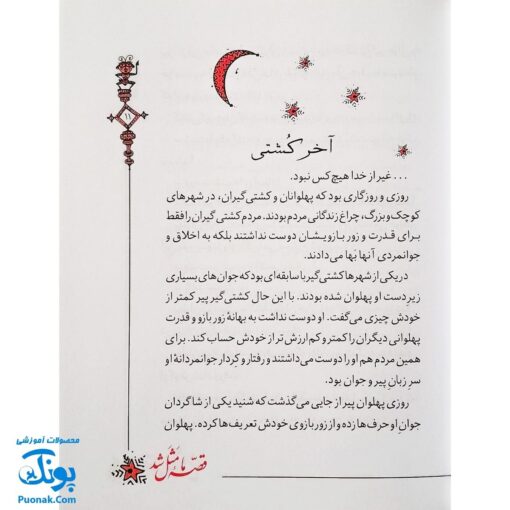 ۱۱
آخر کُشتی
... غیر از خدا هیچ کس نبود.
روزی و روزگاری بود که پهلوانان و کشتی‌گیران، در شهرهای
کوچک و بزرگ، چراغ زندگانی مردم بودند. مردم کشتی گیران را فقط
برای قدرت و زور بازویشان دوست نداشتند بلکه به اخلاق و
جوانمردی آنها بَها می‌دادند.
در یکی از شهرها کشتی‌گیر با سابقه‌ای بود که جوان‌های بسیاری
زیر دست او پهلوان شده بودند. با این حال کشتی‌گیر پیر کمتر از
خودش چیزی می‌گفت. او دوست نداشت به بهانهٔ زور بازو و قدرت
پهلوانی دیگران را کمتر و کم ارزش تر از خودش حساب کند. برای
همین مردم هم او را دوست می‌داشتند و رفتار و کردار جوانمردانهٔ او
سرِ زبانِ پیر و جوان بود.
روزی پهلوان پیر از جایی می‌گذشت که شنید یکی از شاگردان
جوان او حرف‌ها زده و از زور بازوی خودش تعریف‌ها کرده. پهلوان
قصّه ما مَثَل شد
محصولات آموزشی
پونک
Puonak.Com